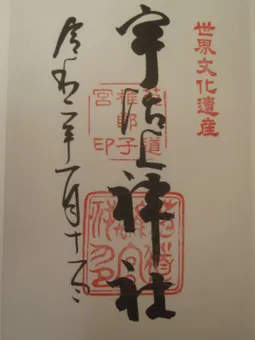 世界文化遺産
宇治上神社
菟道
稚郎子
宮印
令和二年一月十